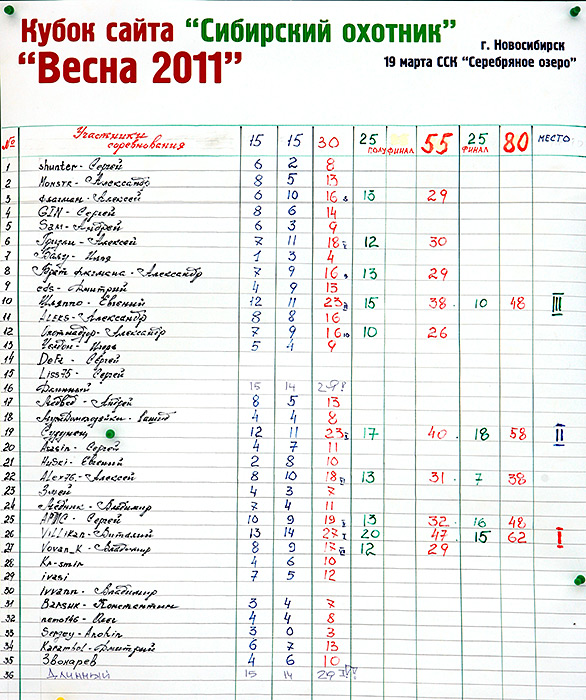 Кубок сайта "Сибирский охотник"
"Весна 2011"
г. Новосибирск
19 марта ССК "Серебряное озеро"
№ Участники соревнования 15 15 30 25 ПОЛУФИНАЛ 55 25 ФИНАЛ 80 МЕСТО
1 shunter - Сергей 6 2 8
2 Монстр - Александр 8 5 13
3 флагман - Алексей 6 10 16 13 29
4 GIN - Сергей 8 6 14
5 Sam - Андрей 6 3 9
6 Гризли - Алексей 7 11 18 12 30
7 Балу - 1 3 4
8 Брат флагмана - Александр 7 9 16 13 29
9 cds - Дмитрий 4 9 13
10 Шляппо - Евгений 12 11 23 15 38 10 48 III
11 ALEKS - Александр 8 8 16
12 Александр 7 9 16 10 26
13 Чалдон - Игорь 5 4 9
14 DeFz - Сергей
15 Liss75 - Сергей
16 Длинный 15 14 29!
17 Медвед - Андрей 8 5 13
18 4 4 8
19 Судунец 12 11 23 17 40 18 58 II
20 Сергей 4 7 11
21 Huski - Евгений 2 8 10
22 Alex76 - Алексей 8 10 18 13 31 7 38
23 Змей 4 3 7
24 Медник - Владимир 7 4 11
25 АРМС - Сергей 10 9 19 13 32 16 48
26 VILLikan - Виталий 13 14 27 20 47 15 62 I
27 Vovan_K - Владимир 8 9 17 12 29
28 Kr-smir 4 6 10
29 ivasi 7 5 12
30 Ivvann - Владимир
31 Barsuk - Константин 3 4 7
32 nemo146 - Олег 4 4 8
33 Sergey - Anohin 3 0 3
34 Karambol - Дмитрий 6 7 13
35 Звонарев 4 6 10
36 Длинный 15 14 29